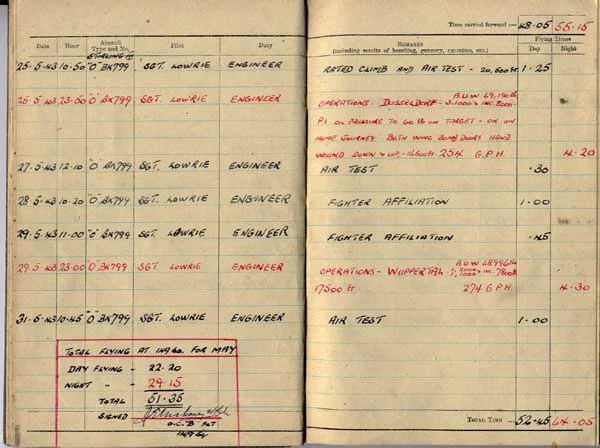 Time carried forward :— 48.05 55.15
Date Hour Aircraft Type and No. Pilot Duty Remarks (including results of bombing, gunnery, exercises, etc.) Flying Times Day Night
STIRLING III
25.5.43 10.50 "O" BK799 SGT. LOWRIE ENGINEER RATED CLIMB AND AIR TEST - 20,500 ft 1.25
25.5.43 23.50 "O" BK799 SGT. LOWRIE ENGINEER OPERATIONS - DUSSELDORF -
A.U.W 69,150 lb
P.I ON PRESSURE TO 60 lb ON TARGET - OK ON
HOME JOURNEY. BOTH WING BOMB DOORS HAND
WOUND DOWN & UP, 254 G.P.H 4.20
27.5.43 12.10 "O" BK799 SGT. LOWRIE ENGINEER AIR TEST .30
28.5.43 10.20 "O" BK799 SGT. LOWRIE ENGINEER FIGHTER AFFILIATION 1.00
29.5.43 11.00 "O" BK799 SGT. LOWRIE ENGINEER FIGHTER AFFILIATION .45
29.5.43 23.00 "O" BK799 SGT LOWRIE ENGINEER OPERATIONS - WUPPERTAL -
A.U.W 68996 lb
17500 ft 274 G.P.H. 4.30
31.5.43 10.45 "O" BK799 SGT. LOWRIE ENGINEER AIR TEST 1.00
TOTAL FLYING AT 149 SQ. FOR MAY
DAY FLYING - 22.20
NIGHT " - 29.15
TOTAL 51.35
SIGNED
O.C. B FLT
149 Sq.
Total Time ... 52.45 64.05